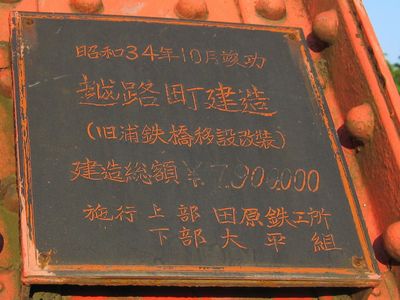 昭和34年10月竣功
越路町建造
(旧浦鉄橋移設改装)
建造総額¥7,900,000
施行 上部 田原鉄工所
下部 大平組